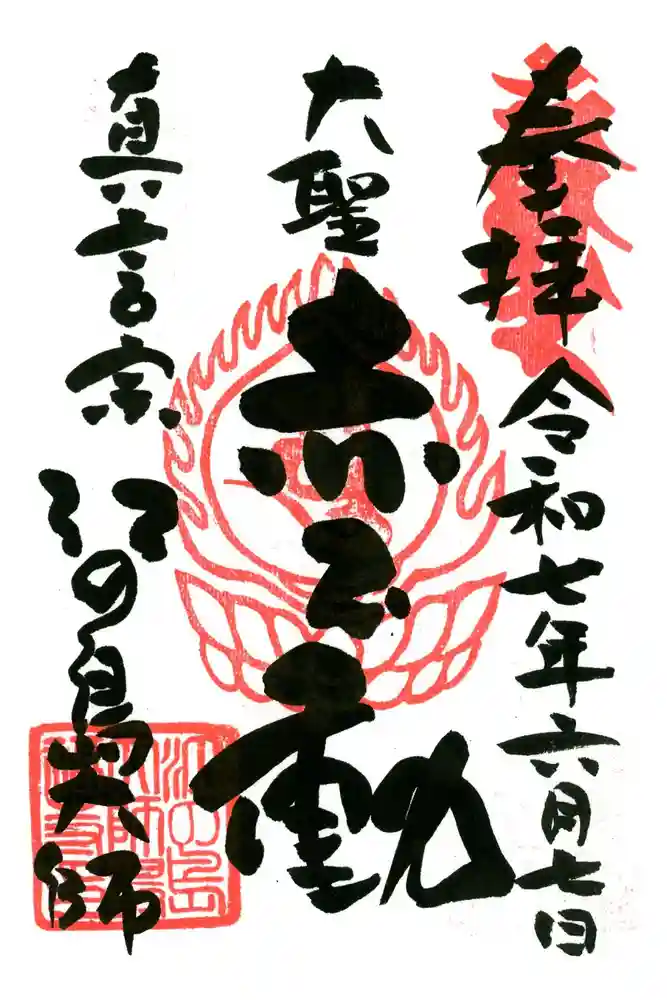 奉拝 令和七年六月七日
大聖 赤不動
真言宗 江の島大師